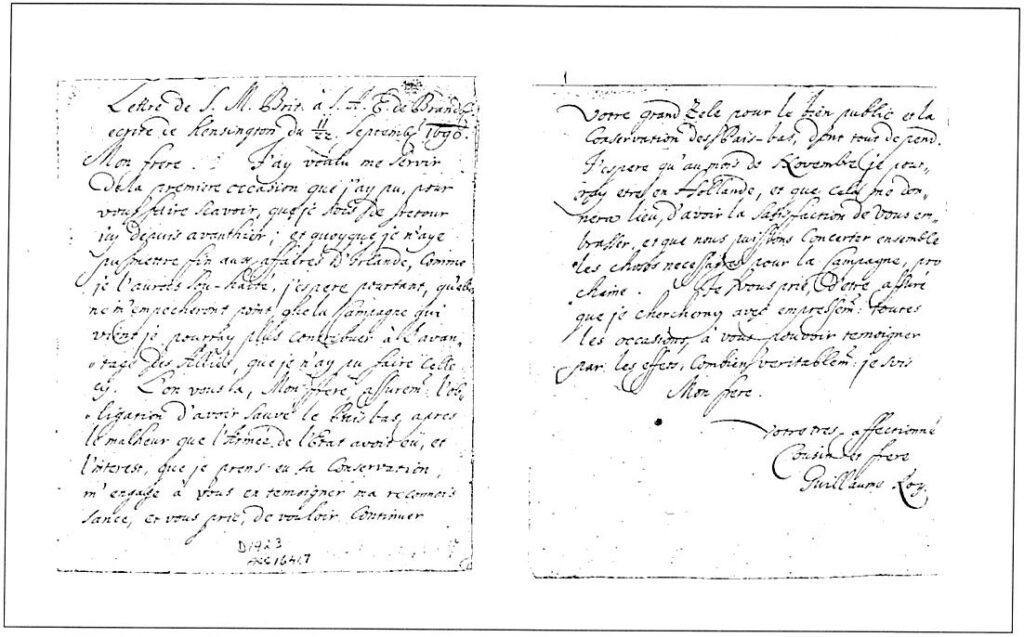 Lettre de S. M. Brit. à S. A. E. de Brandb.
ecrite de Kensington du 11/21 Septemb. 1690.
Mon frere. J'ay voulu me servir
de la premiere occasion que j'ay pu, pour
vous faire scavoir, que je suis de retour
icy depuis avanthier; et quoyque je n'aye
pu mettre fin aux affaires d'Irlande, comme
je l'aurois souhaité, j'espere pourtant, qu'elles
ne m'empecheront point, que la Campagne qui
vient je pourray plus contribuer à l'avan-
tage des Alliés, que je n'ay pu faire cette
cy. L'on vous a, Mon frere, assurem.t l'ob-
ligation d'avoir sauvé le Pais bas, apres
le malheur que l'Armée de l'Etat avoit eü, et
l'interest, que je prens en sa Conservation,
m'engage à vous en temoigner ma reconnois
sance, et vous prie, de vouloir Continuer
D1923
16417
Votre grand Zele pour le bien public et la
Conservation des Pais-bas, dont tout depend.
J'espere qu'au mois de Novembre je pour-
ray etre en Hollande, et que cela me don-
nera lieu, d'avoir la satisfaction de vous em-
brasser, et que nous puissions Concerter ensemble
les choses necessaires pour la Campagne, pro
chaine. Je vous prie, d'etre assuré
que je chercheray avec empressem.t toutes
les occasions, à vous pouvoir temoigner
par les effets, Combien veritablem.t je suis
Mon frere.
Votre tres-affectionné
Cousin et frere
Guillaume Roy.